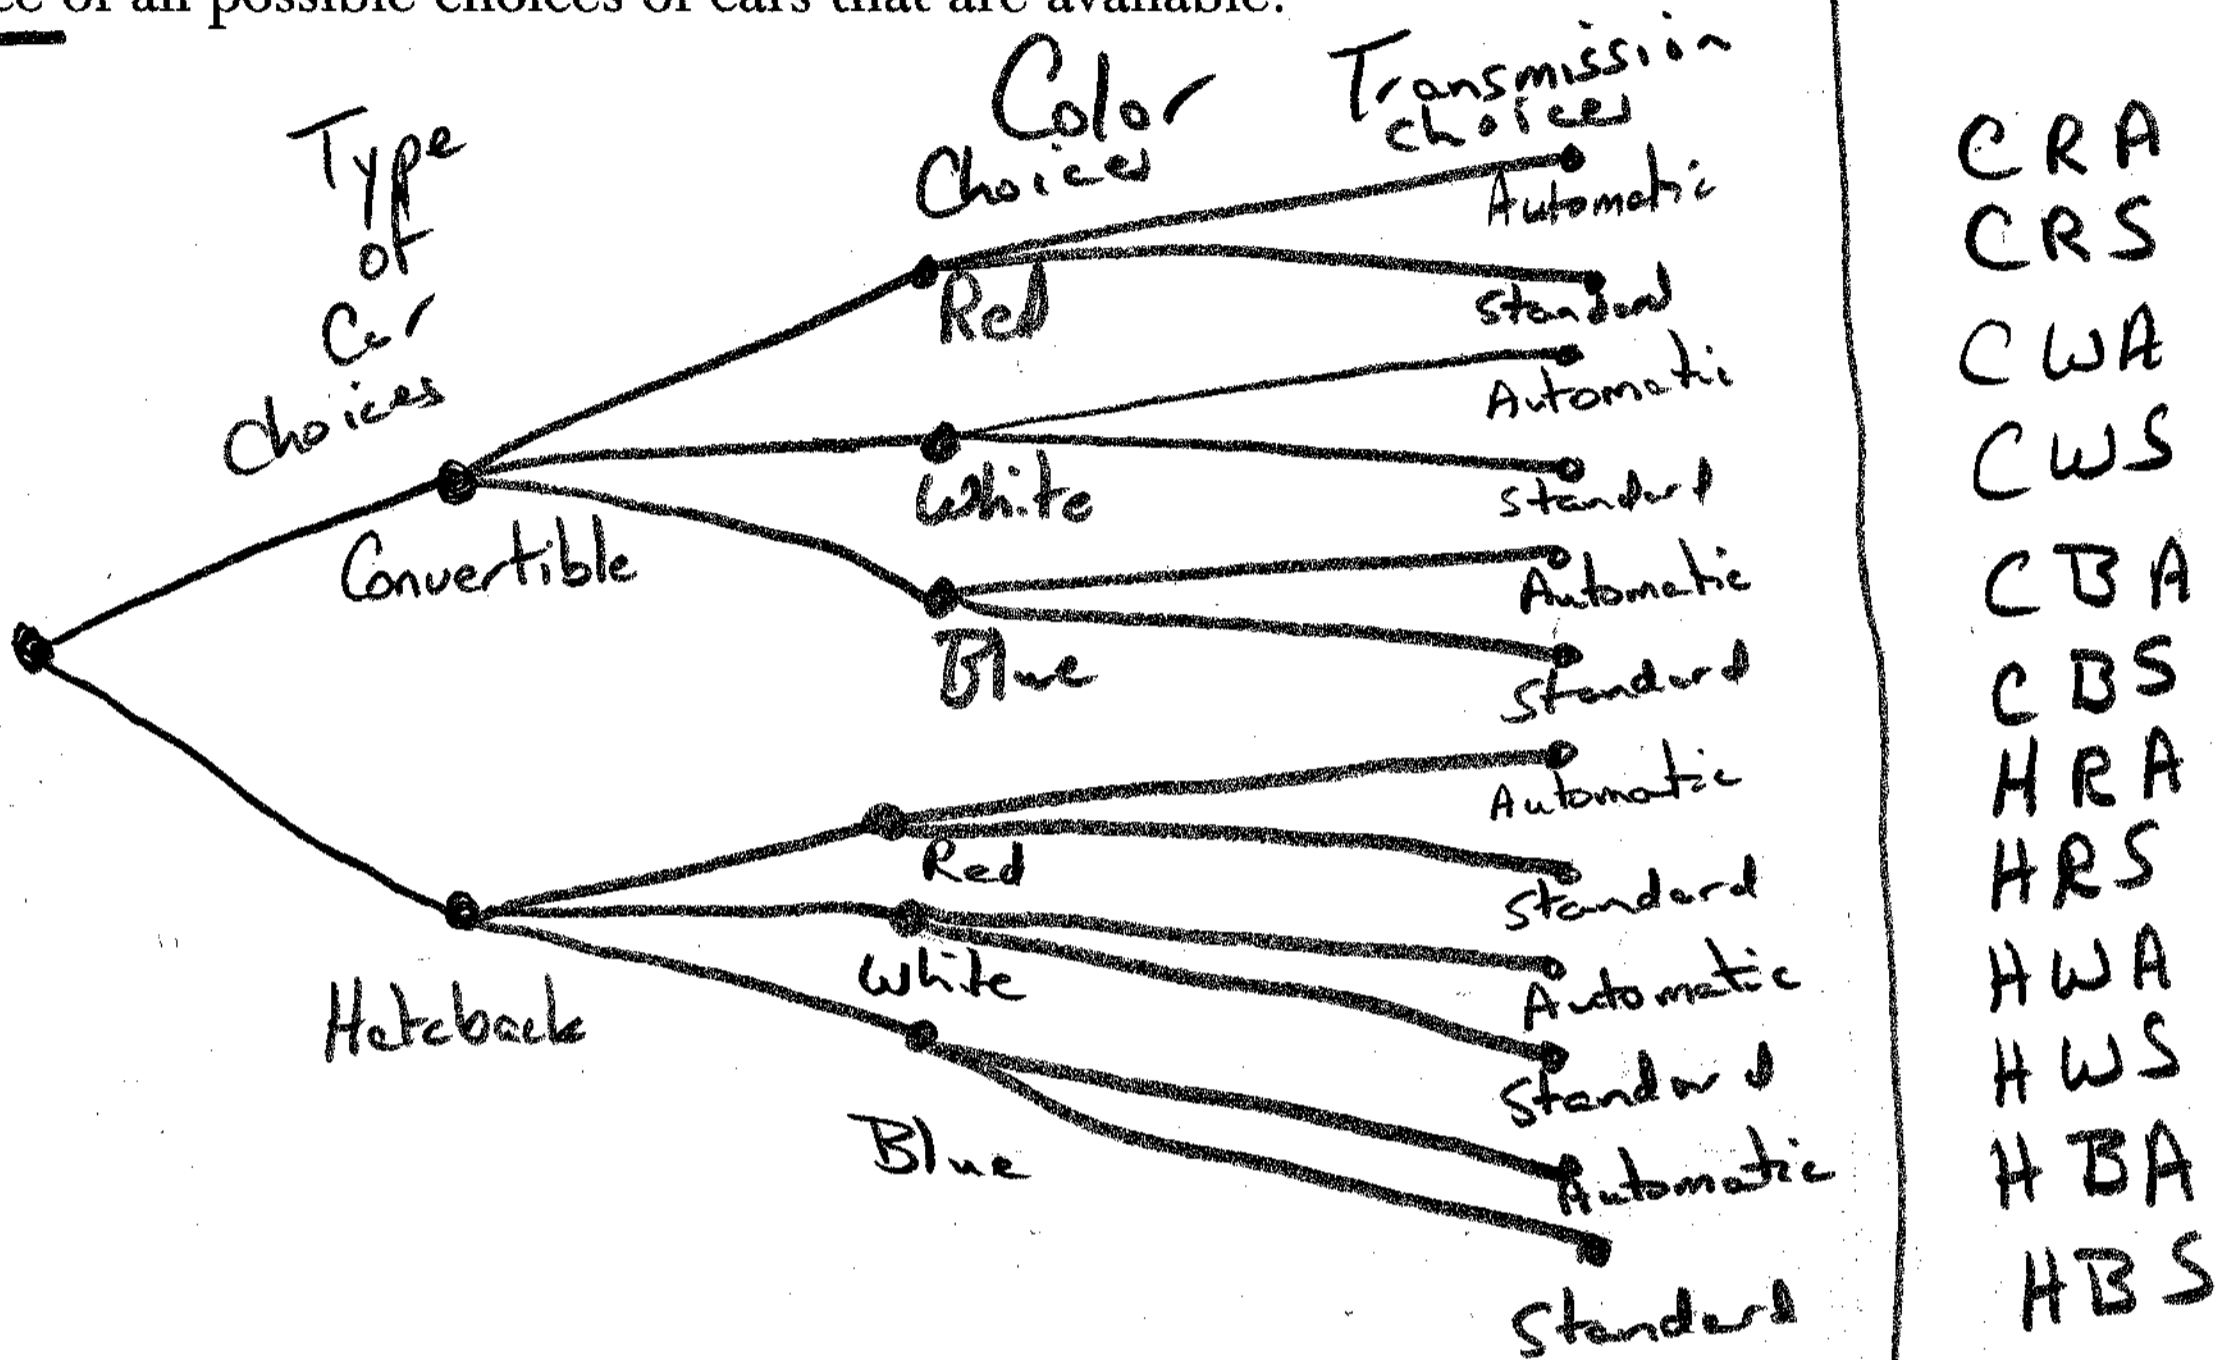 of all possible choices of cars that are available.
Type
of
Car
choices
Color
Choices
Transmission
choices
Convertible
Red
Automatic
Standard
White
Automatic
Standard
Blue
Automatic
Standard
Hatcback
Red
Automatic
Standard
White
Automatic
Standard
Blue
Automatic
Standard
CRA
CRS
CWA
CWS
CBA
CBS
HRA
HRS
HWA
HWS
HBA
HBS